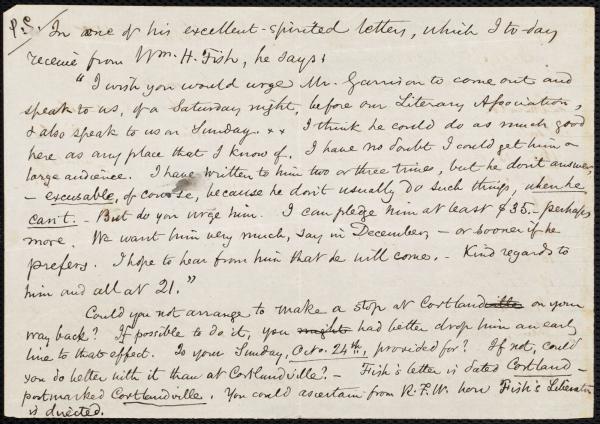 P.S. In one of his excellent-spirited letters, which I to-day
receive from Wm. H. Fish, he says:
"I wish you would urge Mr. Garrison to come out and
speak to us, of a Saturday night, before our Literary Association,
& also speak to us on Sunday. x x I think he could do as much good
here as any place that I know of. I have no doubt I could get him a
large audience. I have written to him two or three times, but he don't answer,
- excusable, of course, because he don't usually do such things, when he
can't. - But do you urge him. I can pledge him at least $35. - perhaps
more. We want him very much, say in December, - or sooner if he
prefers. I hope to hear from him that he will come. - Kind regards to
him and all at 21."
Could you not arrange to make a stop at Cortlandville on your
way back? If possible to do it, you might had better drop him an early
line to that effect. Is your Sunday, Octo. 24th, provided for? If not, could
you do better with it than at Cortlandville? - Fish's letter is dated Cortland -
postmarked Cortlandville. You could ascertain from R.F.W. how Fish's Liberator
is directed.